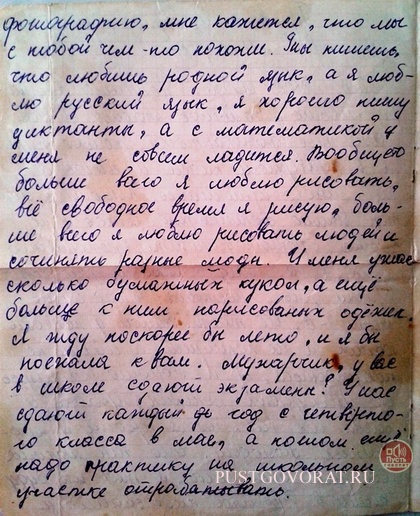 фотографию, мне кажется, что мы
с тобой чем-то похожи. Ты пишешь,
что любишь родной язык, а я люб-
лю русский язык, я хорошо пишу
диктанты, а с математикой у
меня не совсем ладится. Вообще-то
больше всего я люблю рисовать,
всё свободное время я рисую, боль-
ше всего я люблю рисовать людей и
сочинять разные моды. У меня ужас
сколько бумажных кукол, а ещё
больше к ним нарисованых одёжек.
Я жду поскорее бы лето, и я бы
поехала к вам. Мухарчик, у вас
в школе сдают экзамены? У нас
сдают каждый год с четвёрто-
го класса в мае, а потом ещё
надо практику на школьном
участке отрабатывать.
PUSTGOVORAT.RU